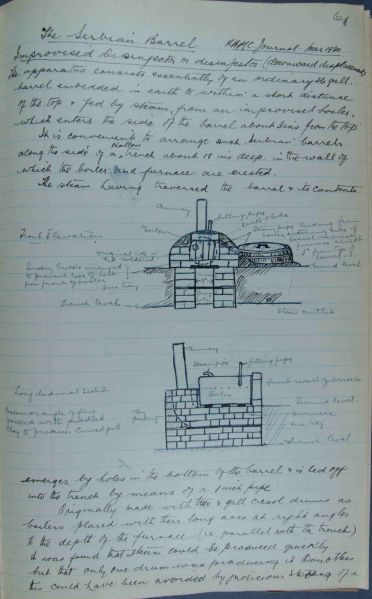 61
The Serbian Barrel RAMC Journal Mar 1920
Improvised Disinfector or disinfestor (downward displacement)
The apparatus consists essentially of an ordinary 36 gall.
barrel embedded in earth to within a short distance
of the top & fed by steam from an improvised boiler,
which enters the side of the barrel about 3 ins from the top
It is convenient to arrange such Serbian barrels
along the side of a shallow trench about 18 in deep, in the wall of
which the boiler and furnace are erected.
The steam having traversed the barrel & its contents
Chimney
filling pipe
Boiler
Steam pipe leading from
Front Elevation
Ground level
Trench level
Steam outlet
Chimney
Steam pipe filling pipe
Front wall of bricks
Boiler
Longitudinal Section
Ground level
Interior angle of flue
packed with puddled
Clay to produce curved path
Clay packing
Trench level
emerges by holes in the bottom of the barrel & is led off
into the trench by means of a 1 inch pipe
Originally made with two gall cresol drums as
boilers placed with their long axes at right angles
to the depth of the furnace (ie parallel with the trench)
it was found that steam could be produced quickly
but that only one drum was producing it
this could have been avoided by judicious of a